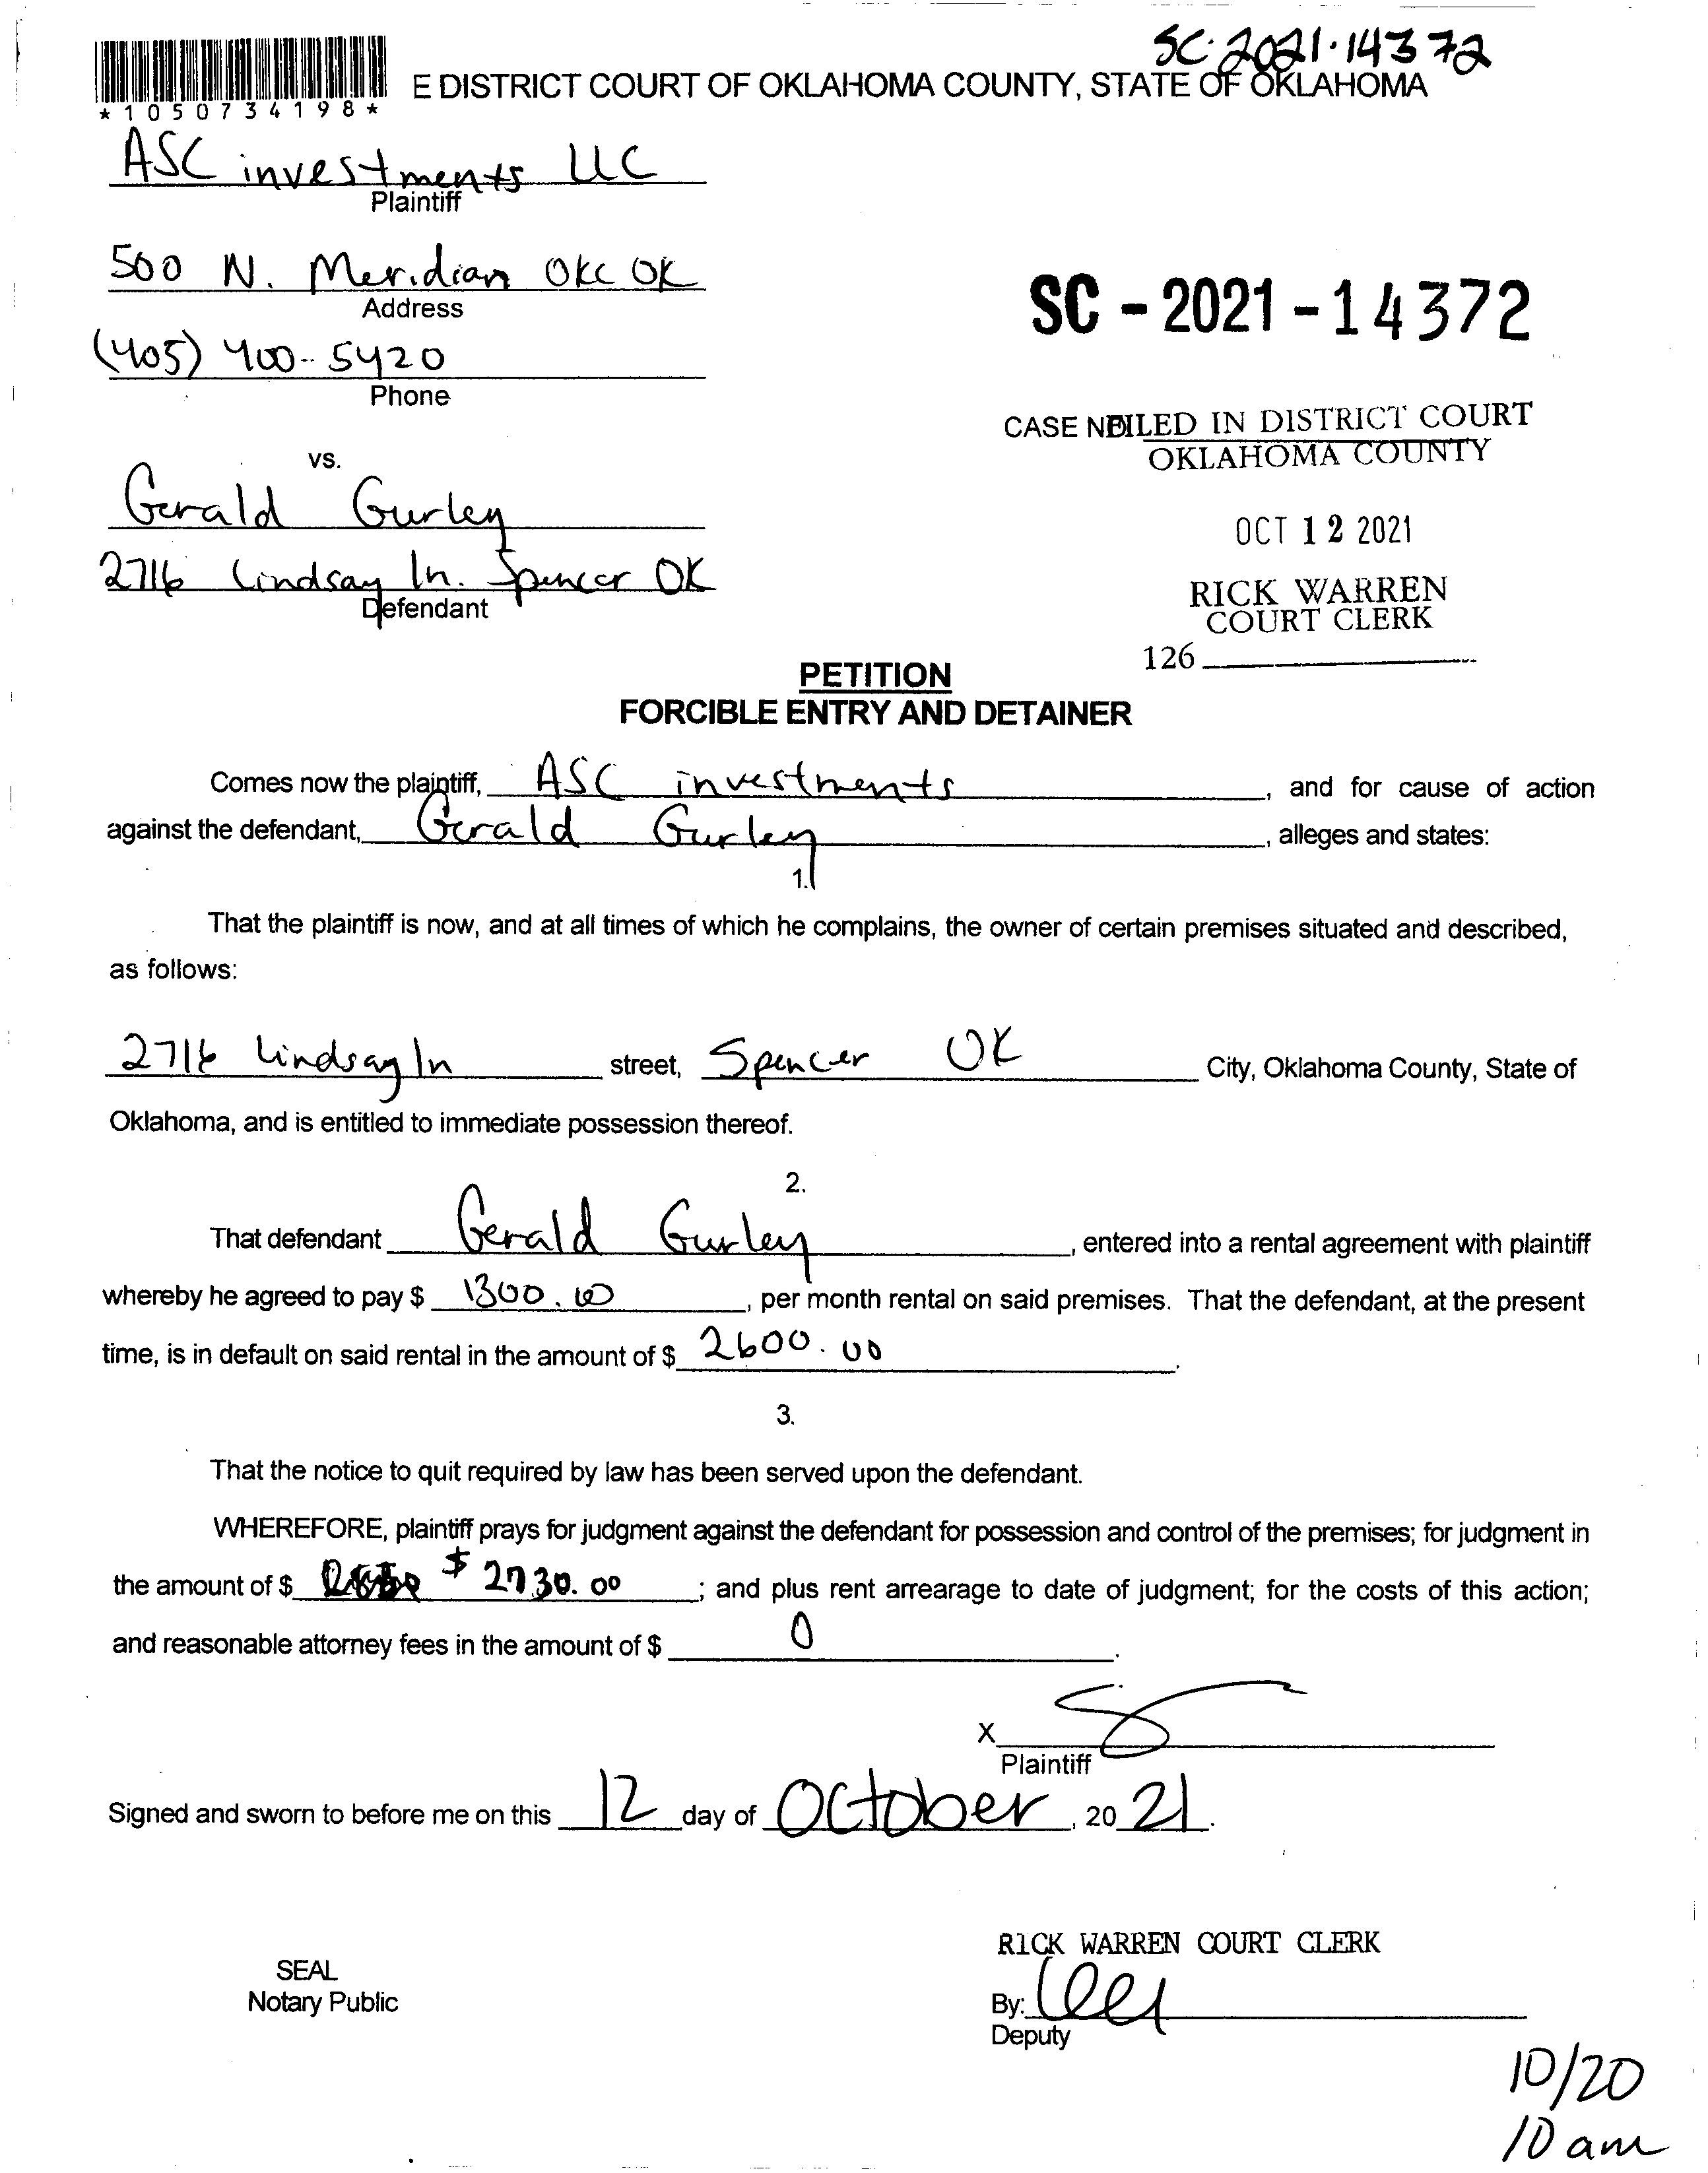 SC-2021-14372
E DISTRICT COURT OF OKLAHOMA COUNTY, STATE OF OKLAHOMA
*1050734198*
ASC investments LLC
Plaintiff
500 N. Meridian OKC OK
Address
(405) 400-5420
Phone
SC-2021-14372
CASE NO
FILED IN DISTRICT COURT
OKLAHOMA COUNTY
OCT 12 2021
RICK WARREN
COURT CLERK
126
vs.
Gerald Gurley
2716 Lindsay ln. Spencer OK
Defendant
PETITION
FORCIBLE ENTRY AND DETAINER
Comes now the plaintiff, ASC investments, and for cause of action
against the defendant, Gerald Gurley, alleges and states:
1.
That the plaintiff is now, and at all times of which he complains, the owner of certain premises situated and described,
as follows:
2716 Lindsay ln street, Spencer OK City, Oklahoma County, State of
Oklahoma, and is entitled to immediate possession thereof.
2.
That defendant Gerald Gurley, entered into a rental agreement with plaintiff
whereby he agreed to pay $ 1300.00, per month rental on said premises. That the defendant, at the present
time, is in default on said rental in the amount of $ 2600.00.
3.
That the notice to quit required by law has been served upon the defendant.
WHEREFORE, plaintiff prays for judgment against the defendant for possession and control of the premises; for judgment in
the amount of $ $ 2730.00; and plus rent arrearage to date of judgment; for the costs of this action;
and reasonable attorney fees in the amount of $ 0.
X
Plaintiff
Signed and sworn to before me on this 12 day of October, 20 21.
RICK WARREN COURT CLERK
SEAL
Notary Public
By:
Deputy
10/20
10 am